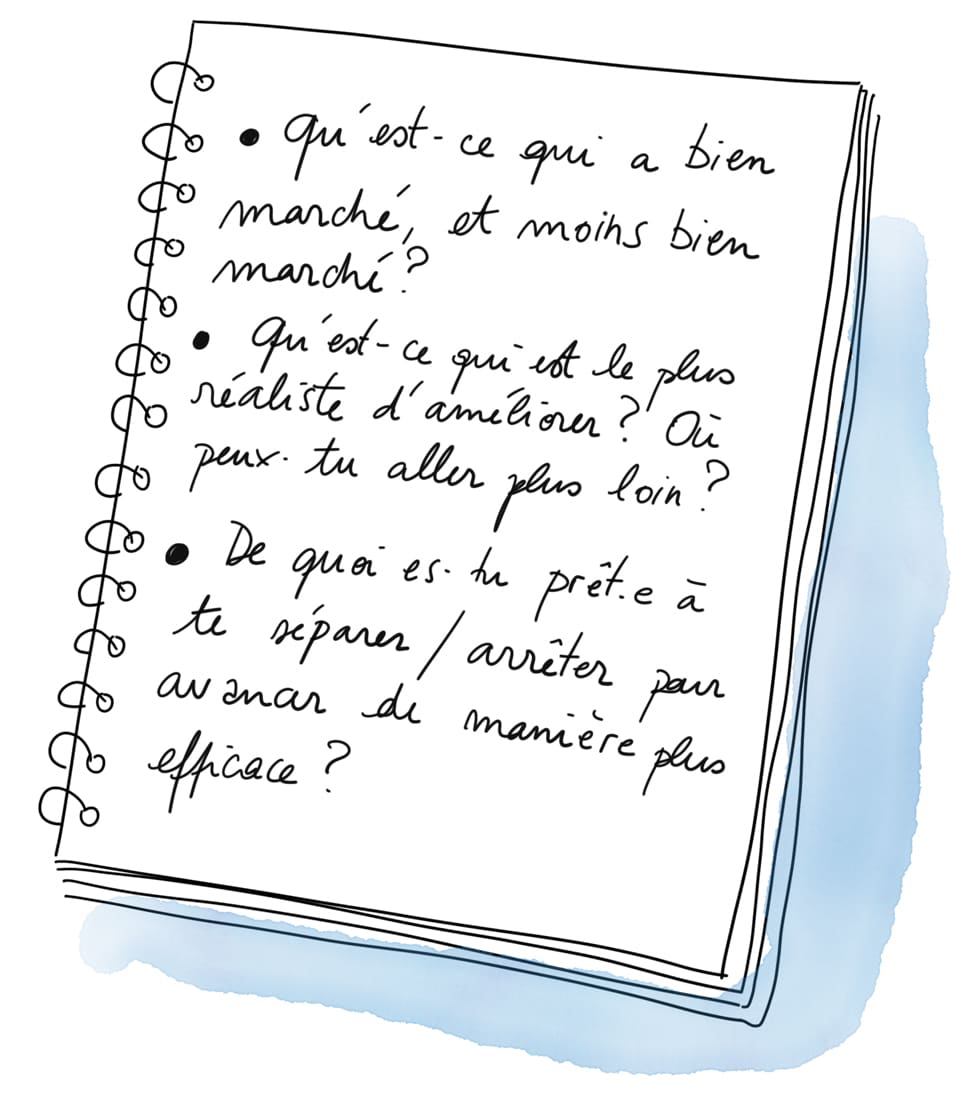 • Qu'est-ce qui a bien
marché, et moins bien
marché ?
• Qu'est-ce qui est le plus
réaliste d'améliorer ? Où
peux-tu aller plus loin ?
• De quoi es-tu prêt.e à
te séparer / arrêter pour
avancer de manière plus
efficace ?